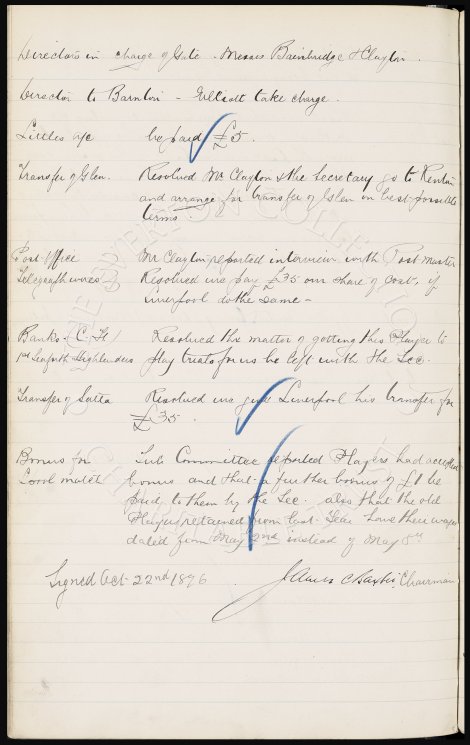 Directors in charge of Gate - Messrs Bainbridge & Clayton.
Director to Barnton - Elliott take charge.
Littles a/c be paid £5.
Transfer of Glen. Resolved Mr Clayton & the Secretary go to Renton
and arrange for transfer of Glen on best possible
terms.
Post Office Mr Clayton reported interview with Post Master
Telegraph wires Resolved we pay £35 our share of cost, if
Liverpool do the same -
Banks - C. H Resolved the matter of getting this Player to
1st Seaforth Highlanders play trials for us be left with the Sec.
Transfer of Resolved we give Liverpool his transfer for
£35.
Bonus for Sub Committee reported Players had accepted
Good matches bonus and that a further bonus of £1 be
paid to them by the Sec. also that the old
Players retained from last Year have their wages
dated from May 2nd instead of May 8th
Signed Oct 22nd 1896 James C Baxter, Chairman
THE EVERTON COLLECTION